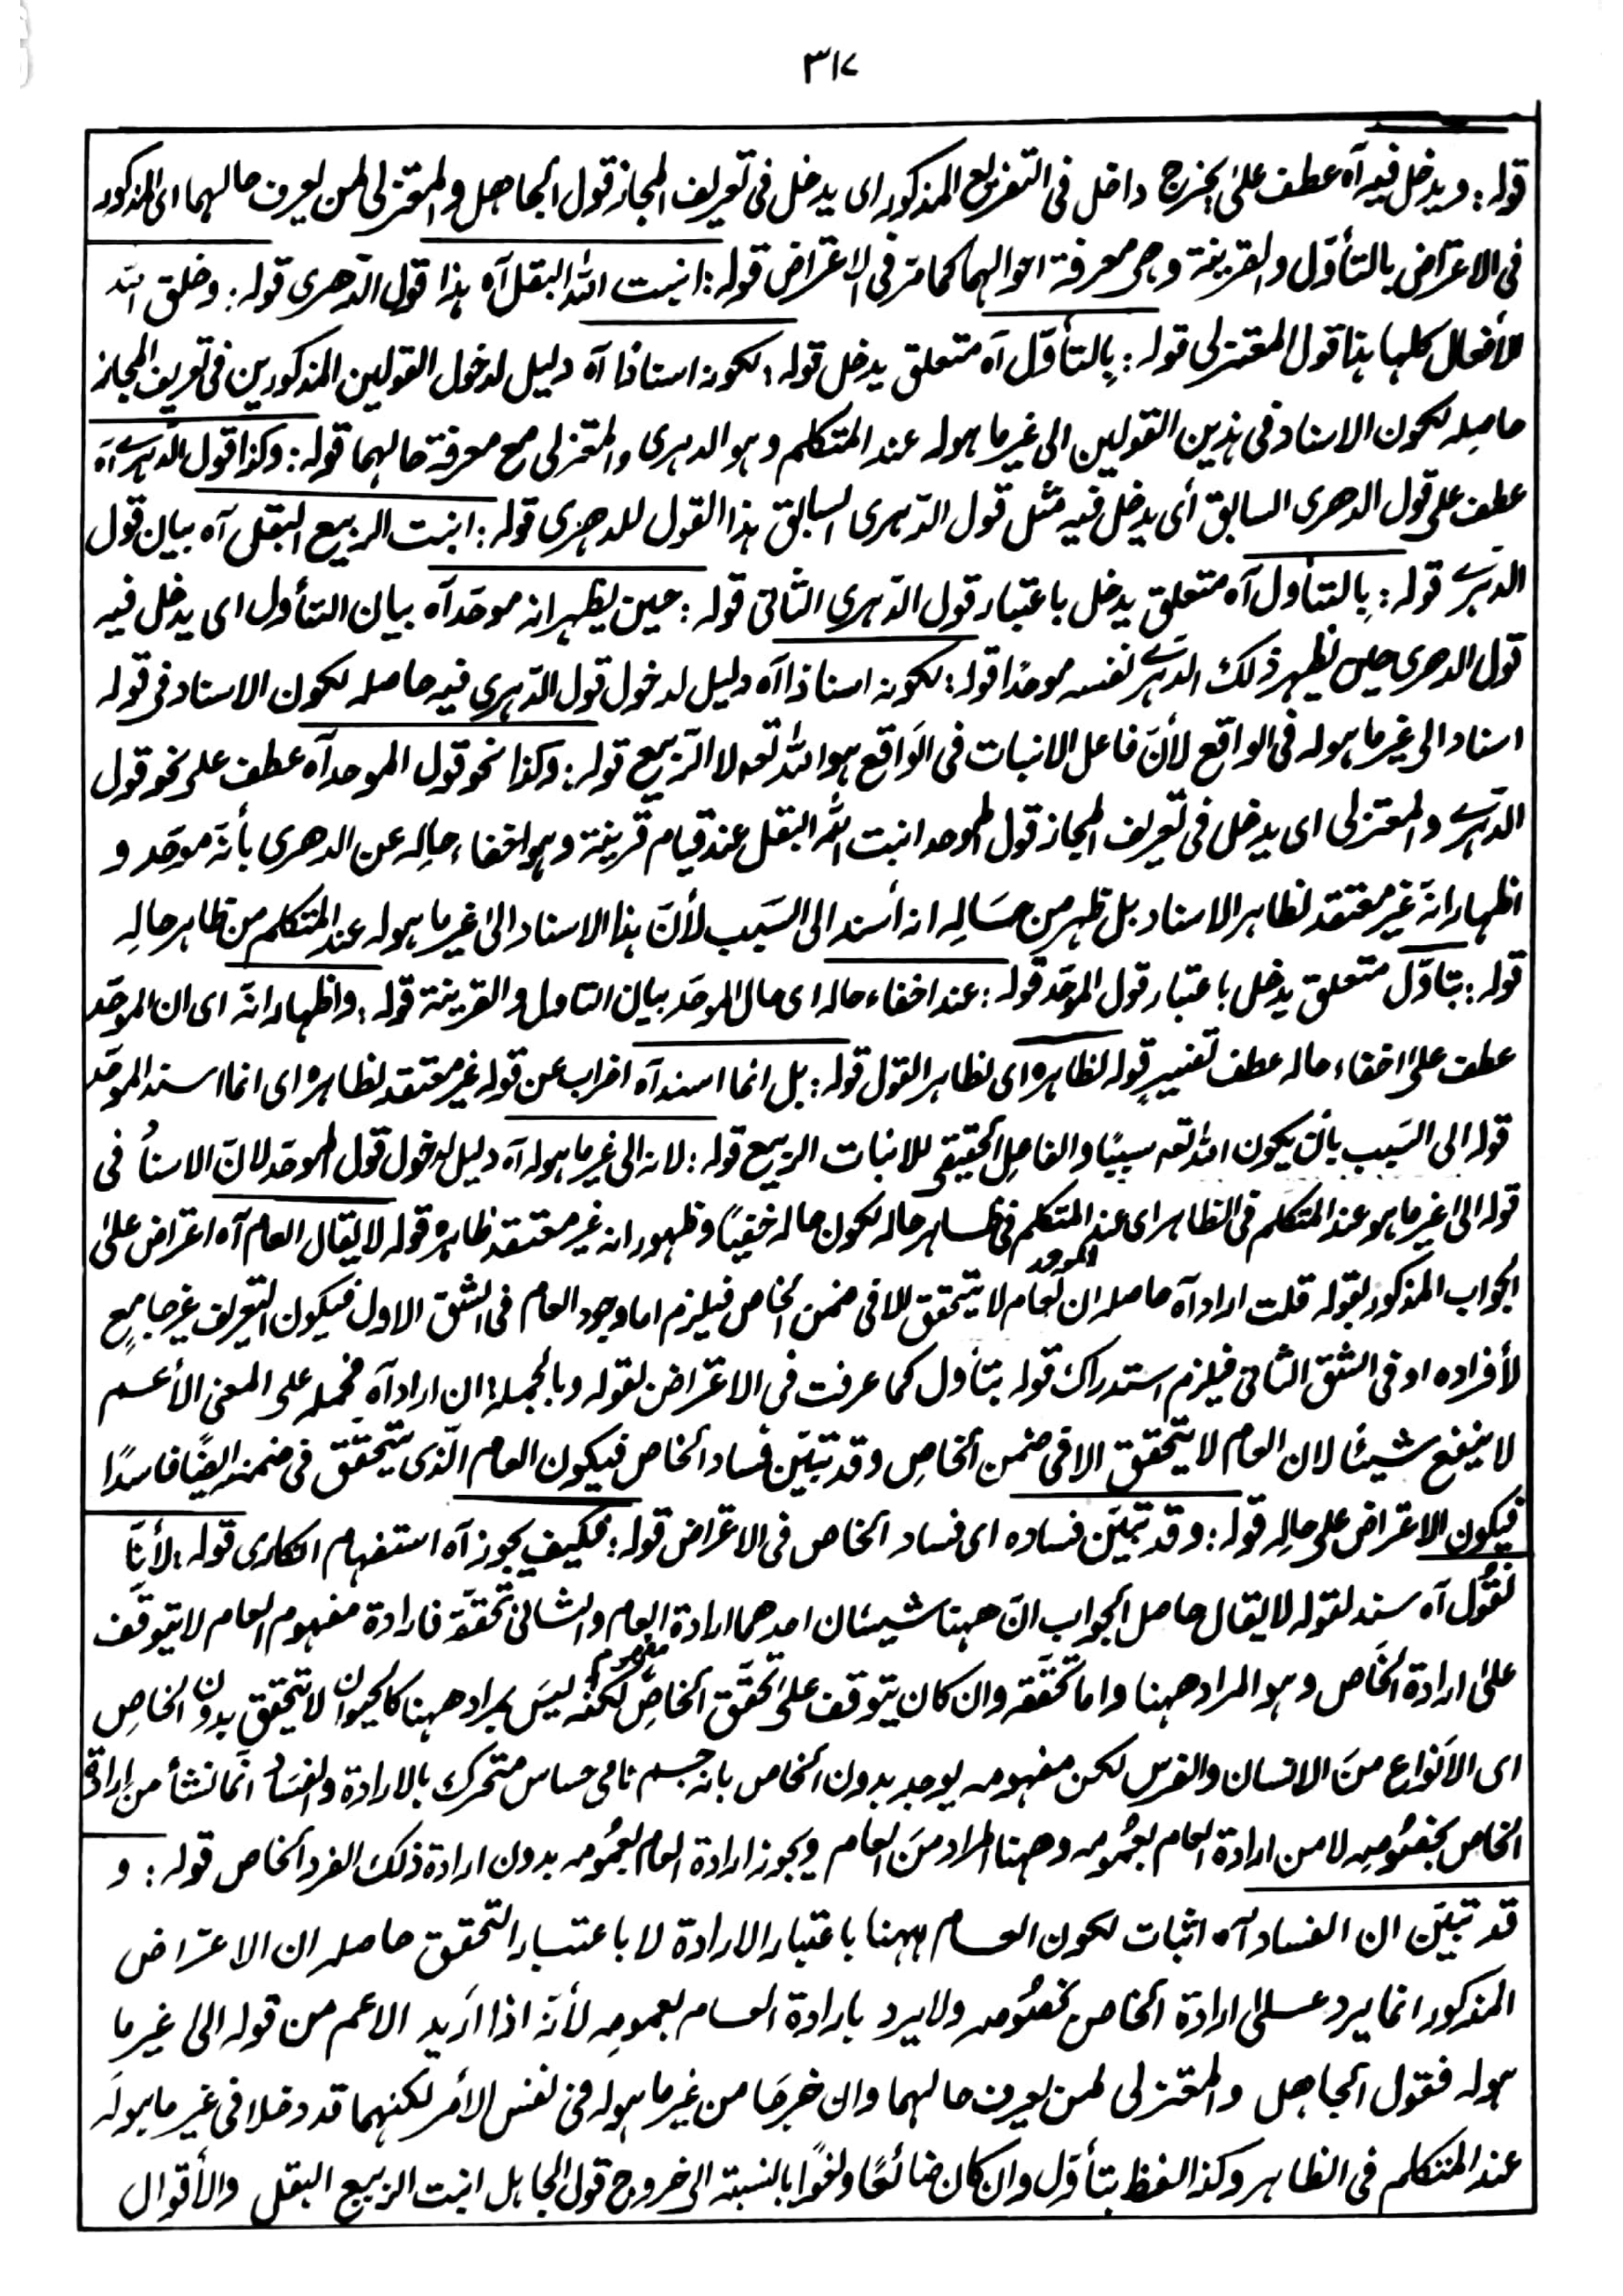 ٣١٧
قوله: ويدخل فيه آه عطف على يخرج داخل فى التفريع المذكور اى يدخل فى تعريف المجاز قول الجاهل والمعتزلى لمن يعرف حالهما اى المذكور
فى الاعتراض بالتأوّل والقرينة وهى معرفة احوالهما كما مرّ فى الاعتراض قوله: انبت الله البقل آه هذا قول الدّهرى قوله: وخلق الله
الأفعال كلها هذا قول المعتزلى قوله: بِالتأوّل آه متعلق يدخل قوله: لكونه اسنادًا آه دليل لدخول القولين المذكورين فى تعريف المجاز
حاصله لكون الاسناد فى هذين القولين الى غير ما هو له عند المتكلم وهو الدهرى والمعتزلى مع معرفة حالهما قوله: وكذا قول الدّهرى آه
عطف على قول الدهرى السابق أى يدخل فيه مثل قول الدّهرى السابق هذا القول للدهرى قوله: انبت الربيع البقل آه بيان قول
الدّهرى قوله: بِالتأوّل آه متعلق يدخل باعتبار قول الدّهرى الثّانى قوله: حين يظهر انه موحّد آه بيان التأول اى يدخل فيه
قول الدهرى حين يظهر ذلك الدّهرى نفسه موحدًا قوله: لكونه اسنادًا آه دليل لدخول قول الدّهرى فيه حاصله لكون الاسناد فى قوله
اسناد الى غير ما هو له فى الواقع لأنّ فاعل الانبات فى الوَاقع هو الله تعه لا الرّبيع قوله: وكذا نحو قول الموحد آه عطف على نحو قول
الدّهرى والمعتزلى اى يدخل فى تعريف المجاز قول الموحد انبت الله البقل عند قيام قرينة وهو اخفاء حالِه عن الدهرى بأنه موحّد و
اظهار انه غير معتقد لظاهر الاسناد بل ظهر من حَالِه انه أسند الى السَبب لأنّ هذا الاسناد الى غير ما هو له عند المتكلم من ظاهر حالِه
قوله: بتاوّل متعلق يدخل باعتبار قول الموحّد قوله: عند اخفاء حاله اى حال الموحّد بيان التاول والقرينة قوله: واظهاره انّه اى ان الموحّد
عطف على اخفاء حاله عطف تفسيرٍ قوله لظاهره اى لظاهر القول قوله: بل انما اسند آه اضراب عن قوله غير معتقد لظاهره اى انما اسند الموحّد
قوله الى السَبب بأن يكون الله تعه سببًا والفاعِل الحقيقى للانبات الربيع قوله: لانه الى غير ما هو له آه دليل لدخول قول الموحّد لانّ الاسناد فى
قوله الى غير ما هو عند المتكلم فى الظاهر اى عند المتكلم فى ظاهر حاله لكون حاله خفيًّا وظهور انه غير معتقد ظاهره قوله لا يقال العام آه اعتراض على
الجواب المذكور بقوله قلت اراد آه حاصله ان العام لا يتحقق الا فى ضمن الخاص فيلزم اما وجود العام فى الشق الاول فيكون التعريف غير جامعٍ
الموحد
لأفراده او فى الشق الثانى فيلزم استدراك قوله بتأول كما عرفت فى الاعتراض لقوله وبالجملة ان اراد آه فحمله على المعنى الأعم
لا ينفع شيئًا لان العام لا يتحقق الا فى ضمن الخاصِ وقد تبيّن فساد الخاص فيكون العام الّذى يتحقق فى ضمنه ايضًا فاسدًا
فيكون الاعتراض على حالِه قوله: وقد تبيّن فساده اى فساد الخاص فى الاعتراض قوله: فكيف يجوز آه استفهام انكارى قوله: لأنّا
نقُول آه سند لقوله لا يقال حاصل الجواب انّ ههنا شيئان احدهما ارادة العام والثانى تحققه فارادة مفهوم العام لا يتوقف
على ارادة الخَاص وهو المراد ههنا واما تحقّقه وان كان يتوقف على تحقّق الخاصّ لكنه ليسَ بمراد ههنا كالحيوان لا يتحقق بدون الخاصِ
اى الأنواع منَ الانسان والفرس لكن مفهومه يوجد بدون الخاص بانه جسم نامى حساس متحرك بالارادة والفسَاد انّما نشأ من إرادة
الخاص بخصُومِه لا من ارادة العام بعمُومه وههنا المراد منَ العام ويجوز ارادة العام بعمُومه بدون ارادة ذلك الفرد الخاص قوله: و
قد تبيّن ان الفساد آه اثبات لكون العام ههنا باعتبار الارادة لا باعتبار التحقق حاصله ان الاعتراض
المذكور انما يرد على ارادة الخاص بخصُومه ولا يرد بارادة العام بعمومِه لأنّه اذا اُريد الاعم من قوله الى غير ما
هو له فقول الجاهل والمعتزلى لمن يعرف حالهما وان خرجَا من غير ما هو له فى نفس الأمر لكنهما قد دخلا فى غير ما هو لَه
عند المتكلم فى الظاهر وكذا لفظ بتأوّل وان كان ضائعًا ولغوًا بالنسبة الى خروج قول الجاهل انبت الربيع البقل والأقوال